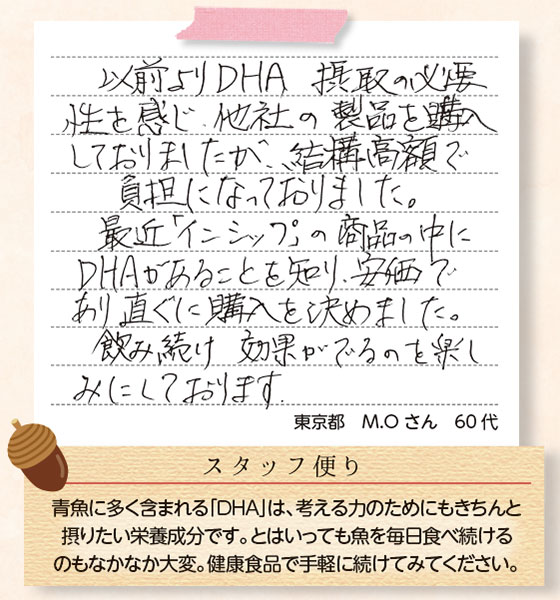 以前よりDHA 摂取の必要
性を感じ、他社の製品を購入
しておりましたが、結構高額で
負担になっておりました。
最近「インシップ」の商品の中に
DHAがあることを知り、安価で
あり直ぐに購入を決めました。
飲み続け 効果がでるのを楽し
みにしております。
東京都 M.Oさん 60代
スタッフ便り
青魚に多く含まれる「DHA」は、考える力のためにもきちんと
摂りたい栄養成分です。とはいっても魚を毎日食べ続ける
のもなかなか大変。健康食品で手軽に続けてみてください。